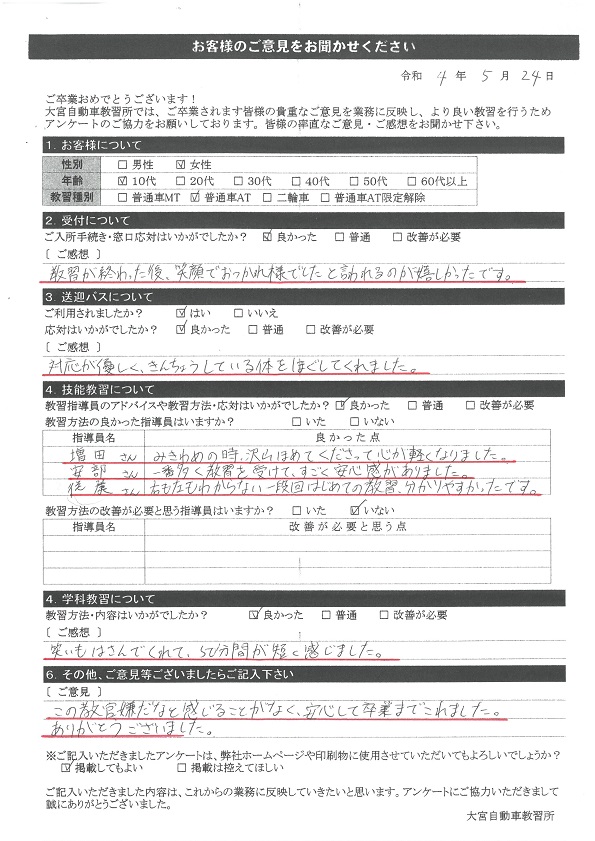 お客様のご意見をお聞かせください
令和 4 年 5 月 24 日
ご卒業おめでとうございます！
大宮自動車教習所では、ご卒業されます皆様の貴重なご意見を業務に反映し、より良い教習を行うため
アンケートのご協力をお願いしております。皆様の率直なご意見・ご感想をお聞かせ下さい。
1. お客様について
性別 □ 男性 ☑ 女性
年齢 ☑ 10代 □ 20代 □ 30代 □ 40代 □ 50代 □ 60代以上
教習種別 □ 普通車MT ☑ 普通車AT □ 二輪車 □ 普通車AT限定解除
2. 受付について
ご入所手続き・窓口応対はいかがでしたか？ ☑ 良かった □ 普通 □ 改善が必要
〔 ご感想 〕
教習が終わった後、笑顔でおつかれ様でしたと言われるのが嬉しかったです。
3. 送迎バスについて
ご利用されましたか？ ☑ はい □ いいえ
応対はいかがでしたか？ ☑ 良かった □ 普通 □ 改善が必要
〔 ご感想 〕
対応が優しく、きんちょうしている体をほぐしてくれました。
4. 技能教習について
教習指導員のアドバイスや教習方法・応対はいかがでしたか？ ☑ 良かった □ 普通 □ 改善が必要
教習方法の良かった指導員はいますか？ □ いた □ いない
指導員名 良かった点
増田 さん みきわめの時、沢山ほめてくださって心が軽くなりました。
安部 さん 一番多く教習を受けて、すごく安心感がありました。
後藤 さん 右も左もわからない一段回はじめての教習、分かりやすかったです。
教習方法の改善が必要と思う指導員はいますか？ □ いた ☑ いない
指導員名 改善が必要と思う点
4. 学科教習について
教習方法・内容はいかがでしたか？ ☑ 良かった □ 普通 □ 改善が必要
〔 ご感想 〕
笑いもはさんでくれて、50分間が短く感じました。
6. その他、ご意見等ございましたらご記入下さい
〔 ご意見 〕
この教官嫌だなと感じることがなく、安心して卒業までこれました。
ありがとうございました。
※ご記入いただきましたアンケートは、弊社ホームページや印刷物に使用させていただいてもよろしいでしょうか？
☑ 掲載してもよい □ 掲載は控えてほしい
ご記入いただきました内容は、これからの業務に反映していきたいと思います。アンケートにご協力いただきまして
誠にありがとうございました。
大宮自動車教習所